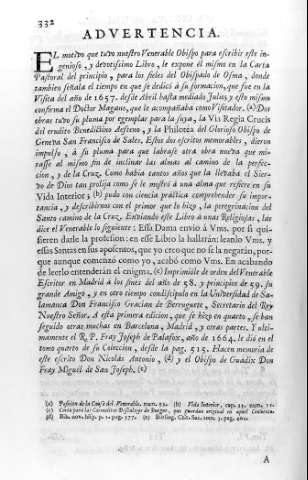 332
ADVERTENCIA.
EL motivo que tuvo nuestro Venerable Obispo para escribir este in-
genioso, y devotissimo Libro, le expone él mismo en la Carta
Pastoral del principio, para los fieles del Obispado de Osma, donde
tambien señala el tiempo en que se dedicó à su formacion, que fue en la
Visita del año de 1657. desde Abril hasta mediado Julio; y esto mismo
confirma el Doctor Magano, que le acompañaba como Visitador. (a) Dos
obras tuvo su pluma por egemplar para la suya, la Via Regia Crucis
del erudito Benedictino Aesteno, y la Philotea del Glorioso Obispo de
Geneva San Francisco de Sales. Estos dos escritos memorables, dieron
impulso, à su pluma para que labrase otra obra nueva que mi-
rasse al mismo fin de inclinar las almas al camino de la perfec-
cion, y de la Cruz. Como habia tantos años que la llevaba el Sier-
vo de Dios tan prolija como se le mostró à una alma que refiere en su
Vida Interior; (b) pudo con ciencia práctica comprehender su impor-
tancia, y describirnos con el primor que lo hizo, la peregrinacion del
Santo camino de la Cruz. Enviando este Libro à unas Religiosas, las
dice el Venerable lo siguiente: Essa Dama envio à Vms. por si qui-
sieren darle la profesion: en esse Libro la hallarán: leanlo Vms. y
essas Santas en sus aposentos, que yo creo que no se la negarán, por-
que aunque comenzó como yo, acabó como Vms. En acabando
de leerlo entenderán el enigma. (c) Imprimióle de orden del Venerable
Escritor en Madrid à los fines del año de 58. y principios de 59. su
grande Amigo, y en otro tiempo condiscipulo en la Universidad de Sa-
lamanca Don Francisco Gracian de Berruguete, Secretario del Rey
Nuestro Señor. A esta primera edicion, que se hizo en quarto, se han
seguido otras muchas en Barcelona, Madrid, y otras partes. Y ulti-
mamente el R. P. Fray Joseph de Palafox, año de 1664. le dió en el
tomo quarto de su Coleccion, desde la pag. 515. Hacen memoria de
este escrito Don Nicolás Antonio, (d) y el Obispo de Guadix Don
Fray Miguel de San Joseph. (e)
(a) Posicion de la Causa del Venerable, num. 52. (b) Vida Interior, cap. 39. num. 11.
(c) Carta para las Carmelitas Descalzas de Burgos, que guardan original en aquel Convento.
(d) Bib. nov. hisp. p. 1. pag. 577. (e) Bibliog. Crit. Sac. tom. 3. pag. 401.
A